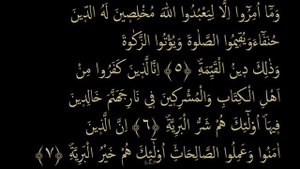 وَمَٓا اُمِرُٓوا اِلَّا لِيَعْبُدُوا اللّٰهَ مُخْلِصِينَ لَهُ الدِّينَ
حُنَفَٓاءَ وَيُقِيمُوا الصَّلٰوةَ وَيُؤْتُوا الزَّكٰوةَ
وَذٰلِكَ دِينُ الْقَيِّمَةِ ﴿٥﴾ اِنَّ الَّذِينَ كَفَرُوا مِنْ
اَهْلِ الْكِتَابِ وَالْمُشْرِكِينَ فِي نَارِ جَهَنَّمَ خَالِدِينَ
فِيهَا اُولٰٓئِكَ هُمْ شَرُّ الْبَرِيَّةِ ﴿٦﴾ اِنَّ الَّذِينَ
اٰمَنُوا وَعَمِلُوا الصَّالِحَاتِ اُولٰٓئِكَ هُمْ خَيْرُ الْبَرِيَّةِ ﴿٧﴾